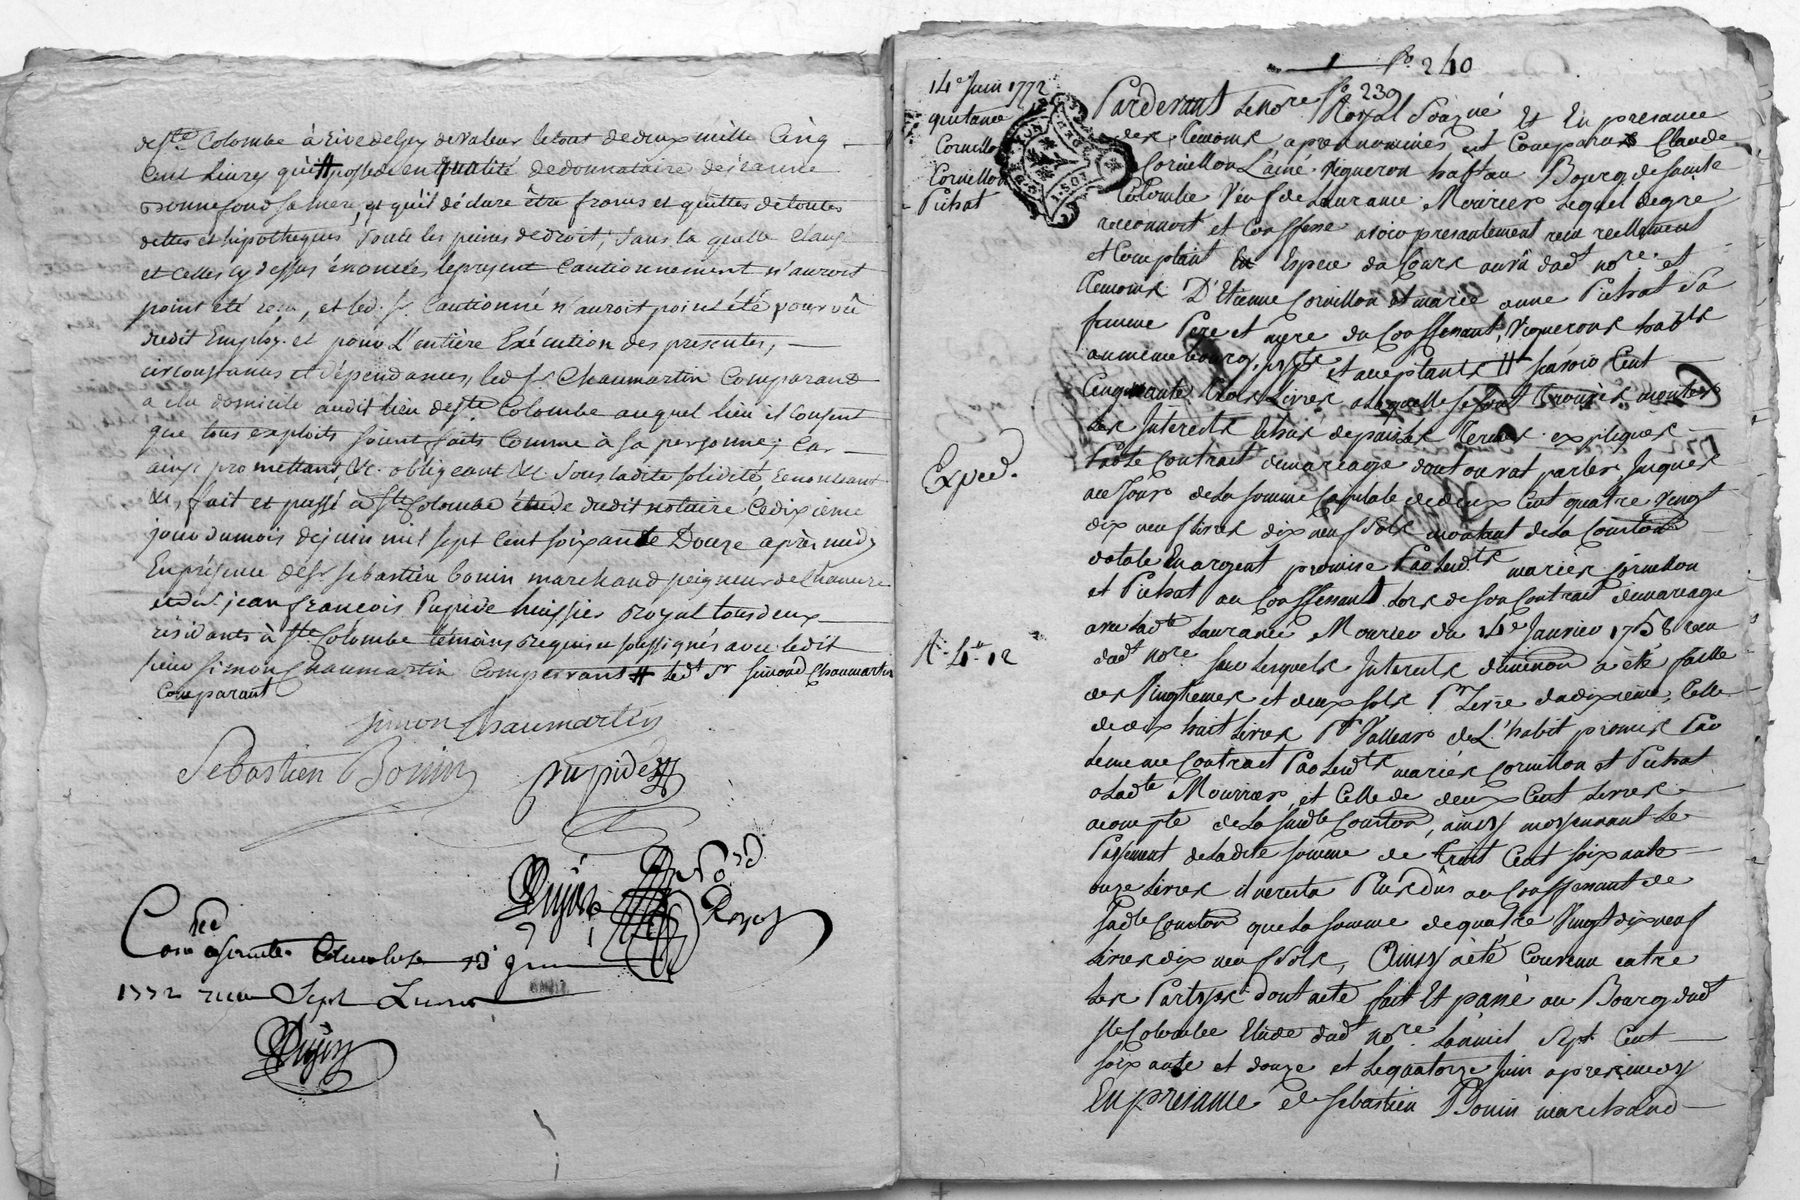 de Ste Colombe à Rive de Gier de valeur le tout de deux mille Cinq
Cent Livres qu'il possede en qualité de donnataire de jeanne
Bonnefond sa mere, et qu'il déclare être francs et quittes de toutes
dettes et hipotheques, sous les peines de droit, sans la quelle claus
et celles cy dessus énoncées le present Cautionnement n'auroit
point été reçu, et led. Sr Cautionné n'auroit point été pourvû
dudit Employ. et pour L'entière Exécution des presentes,
circonstances et dépendances, led Sr Chaumartin Comparant
a élu domicile audit lieu de Ste Colombe auquel lieu il Consent
que tous exploits soient faits Comme à sa personne; Car
ainsi promettant, &c. obligeant &c sous ladite solidité, renonceant
&c, fait et passé à Ste Colombe étude dudit notaire Ce dixieme
jour du mois de juin mil sept Cent soixante Douze après midy
En présence de Sr Sebastien bonin marchand peigneur de Chanvre
et de Sr jean françois Pupide huissier Royal tous deux
résidants à Ste Colombe témoins requis et soussignés avec ledit
sieur Simon Chaumartin Comparant ledt Sr Simond Chaumartin
Comparant
Simon Chaumartin
Sebastien Bonin pupide
Royal
Con^lé a sainte Colombe 13 juin
1772 reçu Sept Livres
fo. 240
fo 239
14e Juin 1772
quitance
Cornillon
Cornillon
Pichat
Expéd.
4 12
Pardevant Le nore Royal Soussigné Et En presance
des temoins apres nommés est Comparu Claude
Cornillon L'ainé vigneron habt au Bourg de sainte
Colombe Veuf de Laurance Mourier Lequel de gre
reconnoit et Confesse avoir presantement recu reellement
et Comptant En Espece du Cours au vû dudt nore. et
Temoins D'Etienne Cornillon et marie anne Pichat sa
femme Pere et mere du Confessant, Vignerons habts
au meme bourg, psts et acceptants scavoir Cent
Cinquante trois Livres a laquelle se sont trouvés montés
Les Interests Echus depuis les termes expliqués
Par le Contrat de mariage dont on vat parler jusques
a ce Jour de La somme Capitale de deux Cent quatre Vingt
dix neuf livres dix neuf sols montant de La Constitution
dotale En argent promise Par Lesdts mariés Cornillon
et Pichat au Confessant Lors de son Contrat de mariage
avec Ladte Laurance Mourier du 14e Janvier 1758 recu
dudt nore. sur Lesquels Interets diminution a été faitte
des Vingtiemes et deux sols Pr Livre du dixieme, Celle
de dix huit Livres Pr Valleur de L'habit promis Par
Le meme Contrat Par Lesdts mariés Cornillon et Pichat
a Ladte Mourier, et Celle de deux Cent Livres
a compte de La susdte Constitution, ainsy moyennant Le
Payement de Ladite somme de trois Cent soixante
onze Livres il ne reste Plus dûs au Confessant de
Ladte Constitution que La somme de quatre Vingt dix neuf
Livres dix neuf Sols, Ainsy a été Convenu entre
Les Partyes dont acte fait Et passé au Bourg dudt
Ste Colombe Etude dudt nore. L'an mil Sept Cent
soixante et douze et Le quatorze Juin apres midy
En presance de Sebastien Bonin marchand